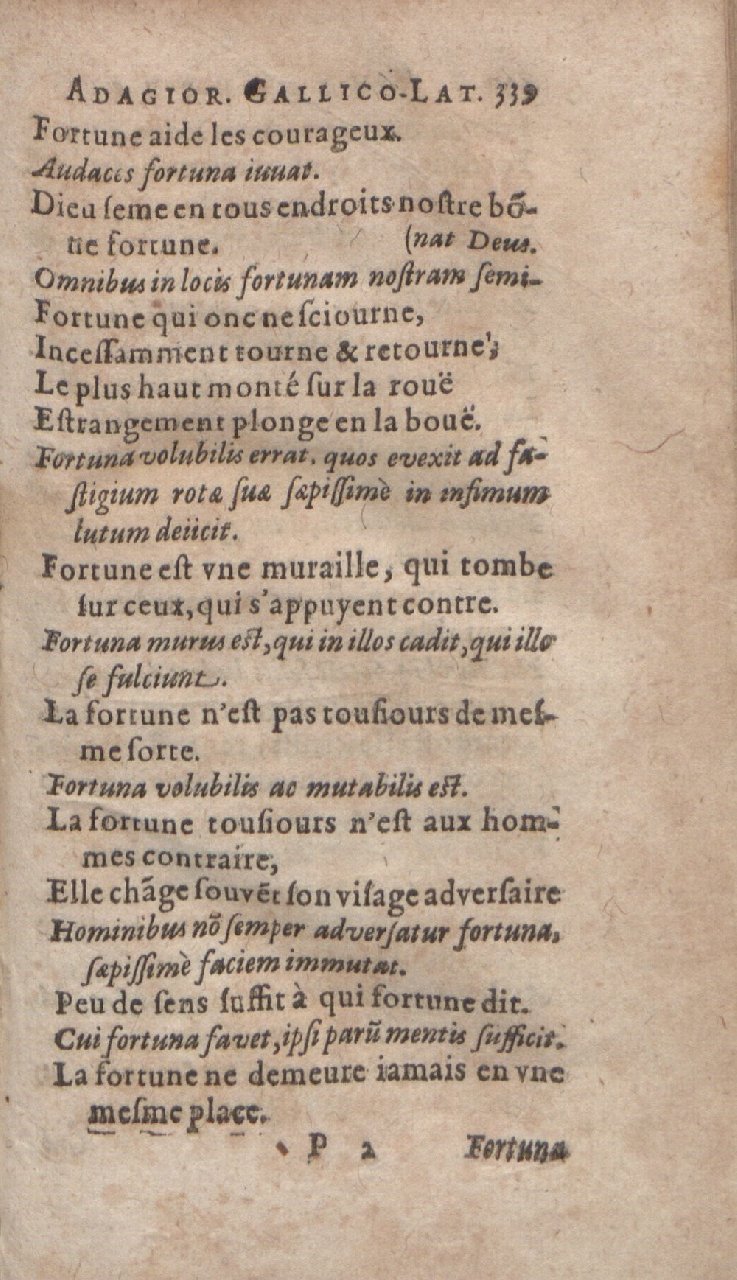 ADAGIOR. GALLICO-LAT. 339
Fortune aide les courageux.
Audaces fortuna iuuat.
Dieu ſeme en tous endroits noſtre bõ-
ne fortune. (nat Deus.
Omnibus in locis fortunam noſtram ſemi-
Fortune qui onc ne ſeiourne,
Inceſſamment tourne & retourne;
Le plus haut monté ſur la rouë
Eſtrangement plonge en la bouë.
Fortuna volubilis errat. quos evexit ad fa-
ſtigium rotæ ſuæ ſæpiſſimè in infimum
lutum deiicit.
Fortune eſt vne muraille, qui tombe
ſur ceux, qui s'appuyent contre.
Fortuna murus eſt, qui in illos cadit, qui illo
ſe fulciunt.
La fortune n'eſt pas touſiours de meſ-
me ſorte.
Fortuna volubilis ac mutabilis eſt.
La fortune touſiours n'eſt aux hom-
mes contraire,
Elle chãge ſouvẽt ſon viſage adverſaire
Hominibus nõ ſemper adverſatur fortuna,
ſæpiſſimè faciem immutat.
Peu de ſens ſuffit à qui fortune dit.
Cui fortuna favet, ipſi parũ mentis ſufficit.
La fortune ne demeure iamais en vne
meſme place.
P 2 Fortuna